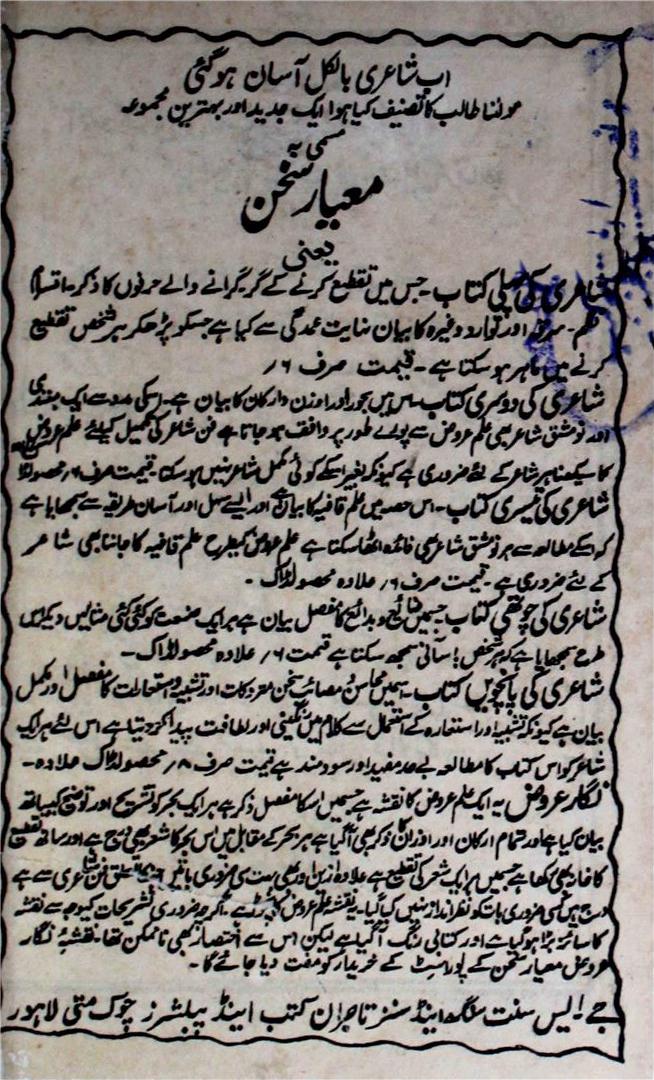 اب شاعری بالکل آسان ہوگئی
مولنا طالب کا تصنیف کیا ہوا ایک جدید اور بہترین مجموعہ
مسمی بہ
معیار سخن
یعنی
شاعری کی پہلی کتاب۔ جس میں تقطیع کرنے کے گر گرانے والے حرفوں کا ذکر۔ اقسام
نظم۔ سرقہ اور توارد وغیرہ کا بیان نہایت عمدگی سے کیا ہے جسکو پڑھکر ہر شخص تقطیع
کرنے میں ماہر ہو سکتا ہے۔ قیمت صرف ۶؍
شاعری کی دوسری کتاب۔ اس میں بحور اور اوزن و ارکان کا بیان ہے۔ اسکی مدد سے ایک مبتدی
اور نو مشق شاعر بھی علم عروض سے پورے طور پر واقف ہو جاتا ہے فن شاعری کی تکمیل کیلئے علم عروض
کا سیکھنا ہر شاعر کے لئے ضروری ہے کیونکہ بغیر اسکے کوئی مکمل شاعر نہیں ہو سکتا۔ قیمت صرف ۶؍ محصولڈاک
شاعری کی تیسری کتاب۔ اس حصہ میں علم قافیہ کا بیان ہے اور ایسے سہل اور آسان طریقہ سے سمجھایا ہے
کہ اسکے مطالعہ سے ہر نو مشق شاعر بھی فائدہ اٹھا سکتا ہے علم عروض کیطرح علم قافیہ کا جاننا بھی شاعر
کے لئے ضروری ہے۔ قیمت صرف ۶؍ علاوہ محصولڈاک۔
شاعری کی چوتھی کتاب جسمیں صنائع و بدائع کا مفصل بیان ہے ہر ایک صنعت کو کئی کئی مثالیں دیکر اس
طرح سمجھایا ہے کہ ہر شخص بآسانی سمجھ سکتا ہے قیمت ۶؍ علاوہ محصولڈاک۔
شاعری کی پانچویں کتاب۔ اسمیں محاسن و مصائب سخن متروکات اور تشبیہ و استعارات کا مفصل اور مکمل
بیان ہے کیونکہ تشبیہ اور استعارہ کے استعمال سے کلام میں رنگینی اور لطافت پیدا کر دیتا ہے اس لئے ہر ایک
شاعر کو اس کتاب کا مطالعہ بے حد مفید اور سود مند ہے قیمت صرف ۸؍ محصولڈاک علاوہ۔
نگار عروض یہ ایک علم عروض کا نقشہ ہے جسمیں اسکا مفصل ذکر ہے ہر ایک بحر کو تشریح اور توضیح کیساتھ
بیان کیا ہے اور تمام ارکان اور اوزان کا ذکر بھی آ گیا ہے ہر بحر کے مقابل میں اس بحر کا شعر بھی درج ہے اور ساتھ تقطیع
کا خانہ بھی رکھا ہے جسمیں ہر ایک شعر کی تقطیع ہے علاوہ ازیں اور بھی بہت سی ضروری باتیں جنکا تعلق فن شاعری سے ہے
درج ہیں کسی ضروری بات کو نظر انداز نہیں کیا گیا۔ یہ نقشہ علم عروض کا ہے۔ اگرچہ ضروری تشریحات کیوجہ سے نقشہ
کا سائز بڑا ہو گیا ہے اور کتابی رنگ آ گیا ہے لیکن اس سے اختصار بھی ناممکن تھا۔ نقشہ نگار
عروض معیار سخن کے پورا سیٹ کے خریدار کو مفت دیا جائے گا۔
جے۔ ایس سنت سنگھ اینڈ سنز تاجران کتب اینڈ پبلشرز چوک متی لاہور